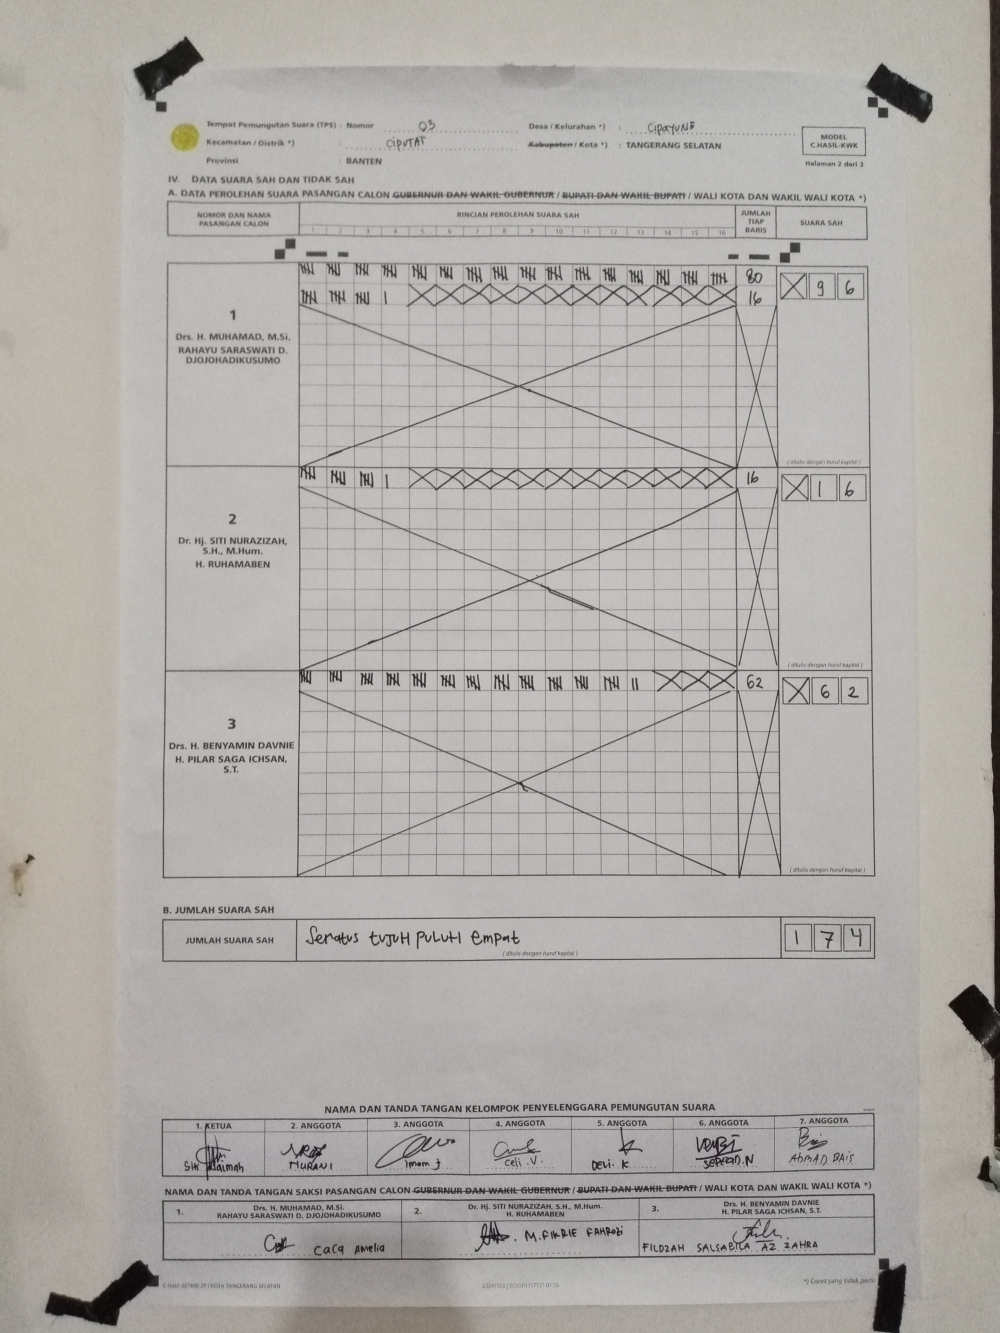 Tempat Pemungutan Suara (TPS) : Nomor 03 Desa / Kelurahan *) : CIPAYUNG
Kecamatan / Distrik *) : CIPUTAT Kabupaten / Kota *) : TANGERANG SELATAN
Provinsi : BANTEN
MODEL
C.HASIL-KWK
Halaman 2 dari 3
IV. DATA SUARA SAH DAN TIDAK SAH
A. DATA PEROLEHAN SUARA PASANGAN CALON GUBERNUR DAN WAKIL GUBERNUR / BUPATI DAN WAKIL BUPATI / WALI KOTA DAN WAKIL WALI KOTA *)
NOMOR DAN NAMA PASANGAN CALON
RINCIAN PEROLEHAN SUARA SAH
JUMLAH TIAP BARIS
SUARA SAH
1 2 3 4 5 6 7 8 9 10 11 12 13 14 15 16
80
16
X 9 6
1
Drs. H. MUHAMAD, M.Si.
RAHAYU SARASWATI D.
DJOJOHADIKUSUMO
( ditulis dengan huruf kapital )
16
X 1 6
2
Dr. Hj. SITI NURAZIZAH,
S.H., M.Hum.
H. RUHAMABEN
( ditulis dengan huruf kapital )
62
X 6 2
3
Drs. H. BENYAMIN DAVNIE
H. PILAR SAGA ICHSAN,
S.T.
( ditulis dengan huruf kapital )
B. JUMLAH SUARA SAH
JUMLAH SUARA SAH Seratus tujuH puluH empat 1 7 4
( ditulis dengan huruf kapital )
NAMA DAN TANDA TANGAN KELOMPOK PENYELENGGARA PEMUNGUTAN SUARA
1. KETUA 2. ANGGOTA 3. ANGGOTA 4. ANGGOTA 5. ANGGOTA 6. ANGGOTA 7. ANGGOTA
Siti NURANI Imam J Celi .V. DELI. K AHMAD BAIS
NAMA DAN TANDA TANGAN SAKSI PASANGAN CALON GUBERNUR DAN WAKIL GUBERNUR / BUPATI DAN WAKIL BUPATI / WALI KOTA DAN WAKIL WALI KOTA *)
1. Drs. H. MUHAMAD, M.Si.
RAHAYU SARASWATI D. DJOJOHADIKUSUMO
2. Dr. Hj. SITI NURAZIZAH, S.H., M.Hum.
H. RUHAMABEN
3. Drs. H. BENYAMIN DAVNIE
H. PILAR SAGA ICHSAN, S.T.
Caca Amelia
M.FIKRIE FAHROZI
FILDZAH SALSABILA AZ ZAHRA
*) Coret yang tidak perlu